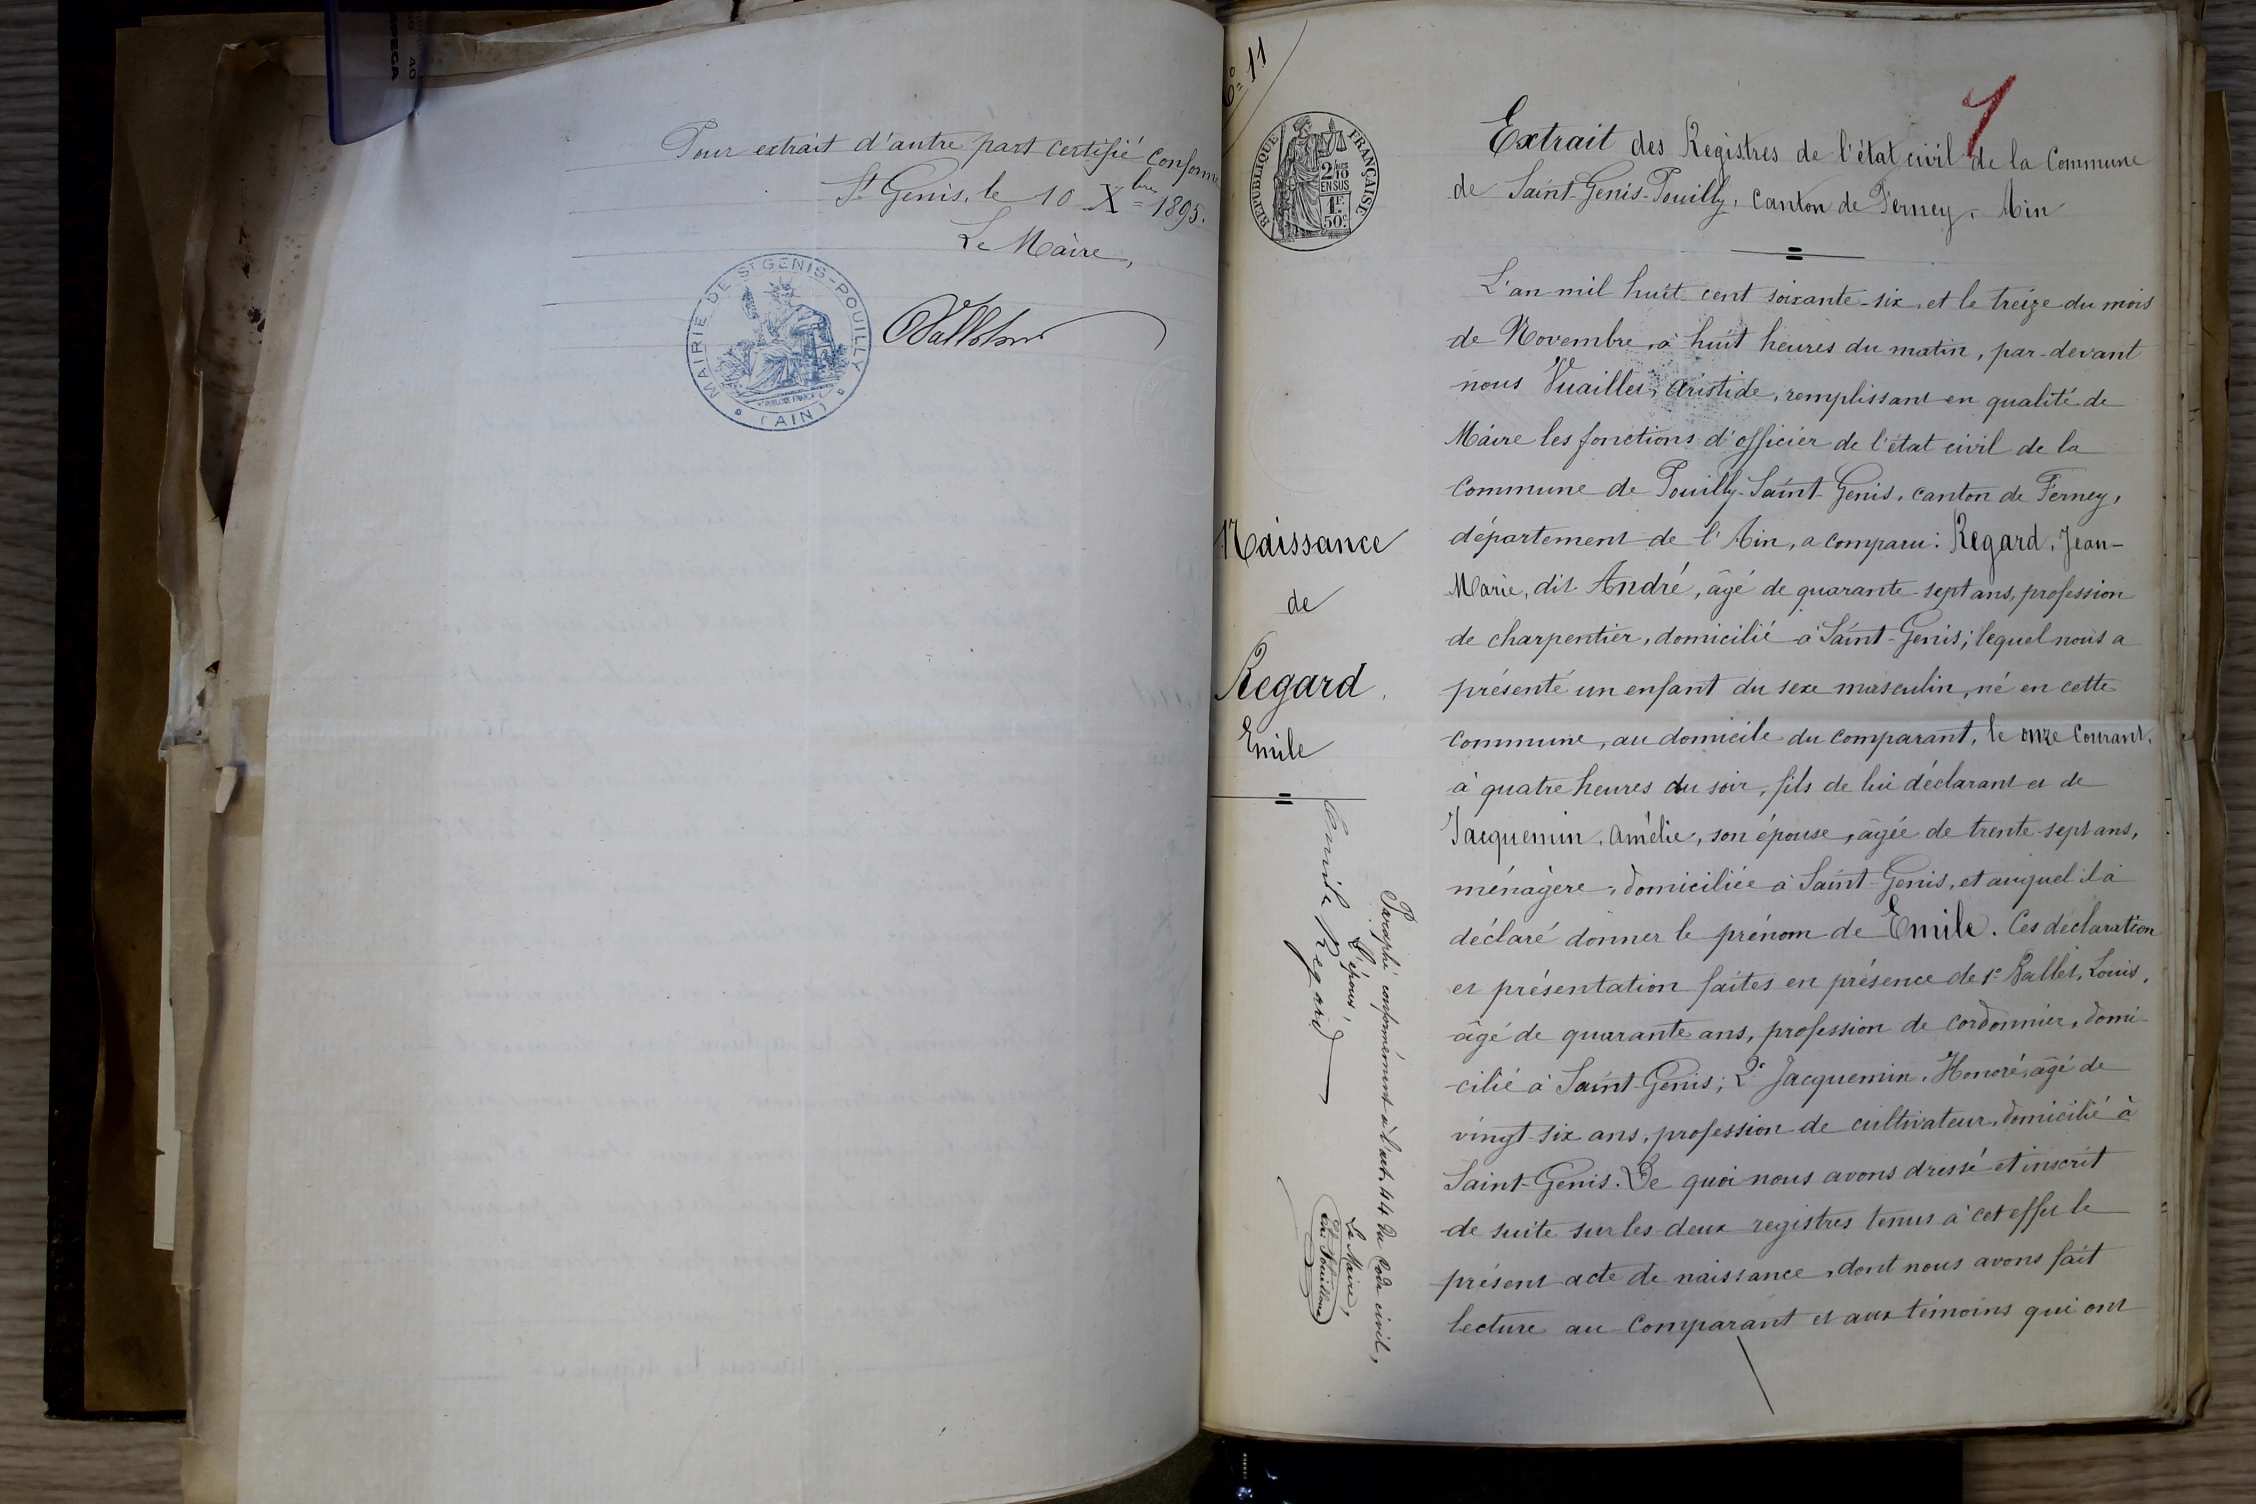 Pour extrait d'autre part certifié conforme
St Genis, le 10 Xbre 1895.
Le Maire,
MAIRIE DE ST GENIS-POUILLY
(AIN)
11
RÉPUBLIQUE FRANÇAISE
2/10
EN SUS
1F
50c
Extrait des Registres de l'état civil de la Commune
de Saint-Genis-Pouilly, Canton de Ferney, Ain
Naissance
de
Regard
Emile
Emile Regard
L'épous,
Paraphé conformément à l'art. 44 du Code civil,
Le Maire,
L'an mil huit cent soixante-six, et le treize du mois
de Novembre, à huit heures du matin, par-devant
nous Vuaillet, Aristide, remplissant en qualité de
Maire les fonctions d'officier de l'état civil de la
Commune de Pouilly-Saint-Genis, canton de Ferney,
département de l'Ain, a comparu: Regard, Jean-
Marie, dit André, âgé de quarante-sept ans, profession
de charpentier, domicilié à Saint-Genis; lequel nous a
présenté un enfant du sexe masculin, né en cette
commune, au domicile du comparant, le onze courant,
à quatre heures du soir, fils de lui déclarant et de
Jacquemin, Amélie, son épouse, âgée de trente-sept ans,
ménagère, domiciliée à Saint-Genis, et auquel il a
déclaré donner le prénom de Emile. Ces déclaration
et présentation faites en présence de 1° Ballet, Louis,
âgé de quarante ans, profession de cordonnier, domi-
cilié à Saint-Genis; 2° Jacquemin, Honoré, âgé de
vingt-six ans, profession de cultivateur, domicilié à
Saint-Genis. De quoi nous avons dressé et inscrit
de suite sur les deux registres tenus à cet effet le
présent acte de naissance, dont nous avons fait
lecture au comparant et aux témoins qui ont